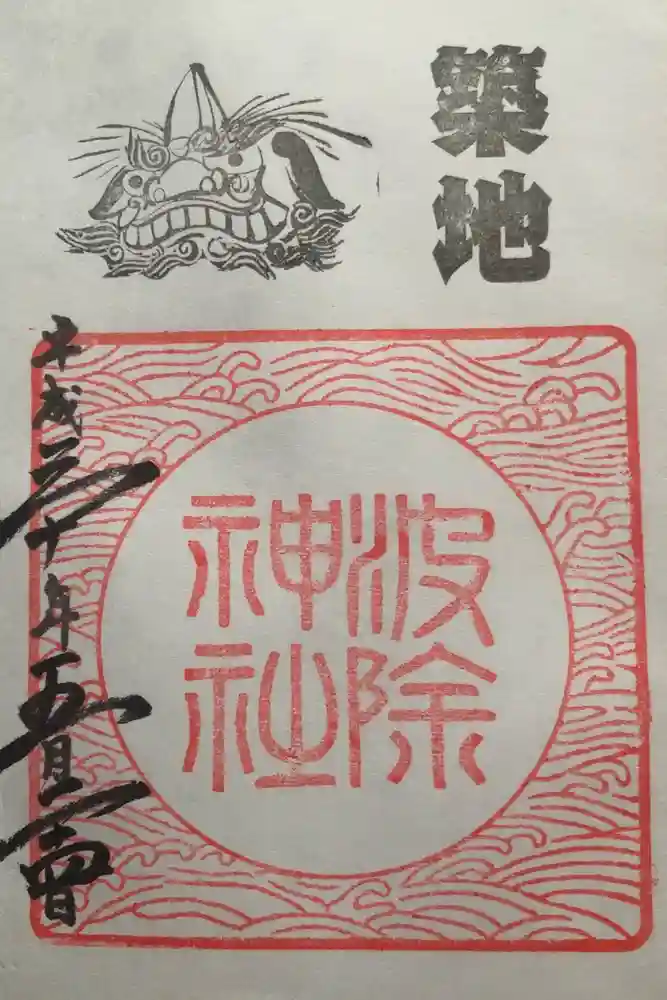 築地
波除
神社
平成三十年五月